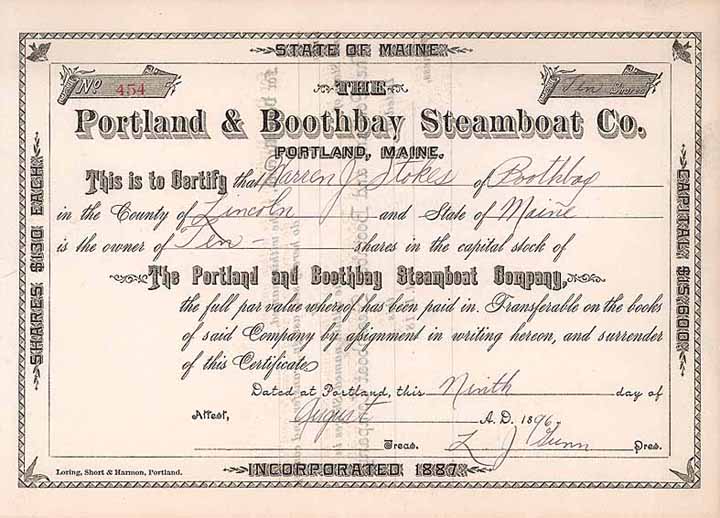 STATE OF MAINE
No 454
Ten Shares
THE
Portland & Boothbay Steamboat Co.
PORTLAND, MAINE.
This is to Certify that Warren J. Stokes of Boothbay
in the County of Lincoln and State of Maine
is the owner of Ten - shares in the capital stock of
The Portland and Boothbay Steamboat Company,
the full par value whereof has been paid in. Transferable on the books
of said Company by assignment in writing hereon, and surrender
of this Certificate
Dated at Portland, this Ninth day of
Attest, August A.D. 1896.
Treas. Pres.
Loring, Short & Harmon, Portland.
INCORPORATED 1887.
SHARES $130 EACH
CAPITAL $15,600